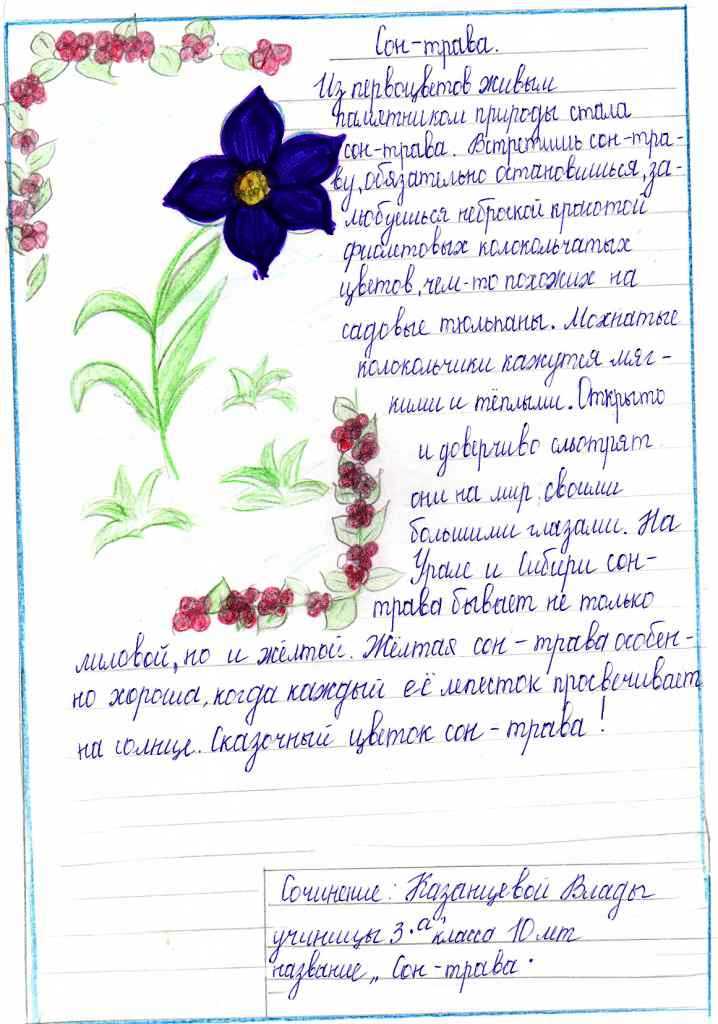 Сон-трава.
Из первоцветов живым
памятником природы стала
сон-трава. Встретишь сон-тра-
ву, обязательно остановишься, за-
любуешься неброской красотой
фиолетовых колокольчатых
цветов, чем-то похожих на
садовые тюльпаны. Мохнатые
колокольчики кажутся мяг-
кими и тёплыми. Открыто
и доверчиво смотрят
они на мир своими
большими глазами. На
Урале и Сибири сон-
трава бывает не только
лиловой, но и жёлтой. Жёлтая сон-трава особен-
но хороша, когда каждый её лепесток просвечивает
на солнце. Сказочный цветок сон-трава!
Сочинение: Казанцевой Влады
учиницы 3 "а" класса 10 лет
название „Сон-трава"